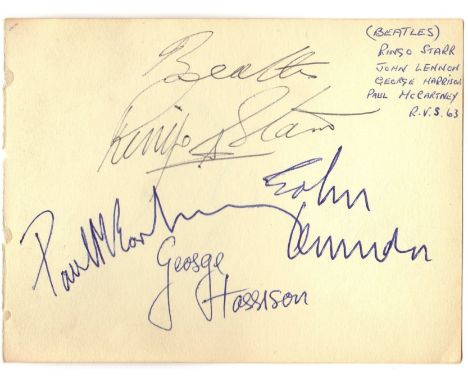 (BEATLES)
RINGO STARR
JOHN LENNON
GEORGE HARRISON
PAUL McCARTNEY
R.V.S. 63
Beatles
Ringo Starr
Paul McCartney
John
Lennon
George
Harrison